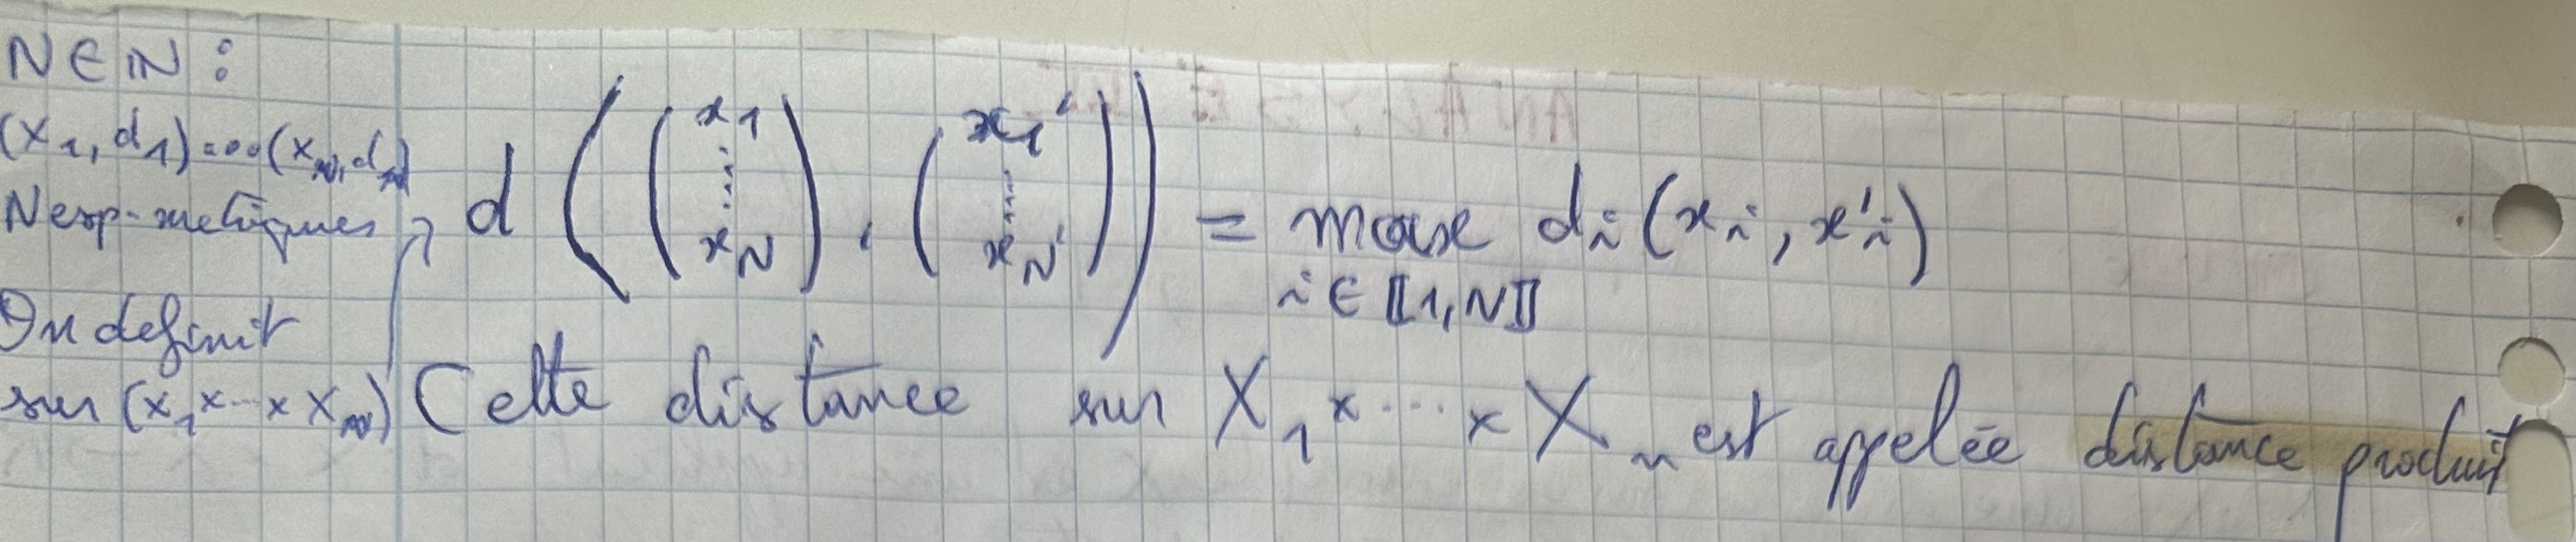 N ∈ ℕ :
(X₁, d₁) ... (X_N, d_N)
N esp. métriques,
On définit
sur (X₁ × ... × X_N)
d((x₁ ⋮ x_N), (x₁' ⋮ x_N')) = max d_i(x_i, x'_i)
i ∈ ⟦1, N⟧
Cette distance sur X₁ × ... × X_n est appelée distance produit